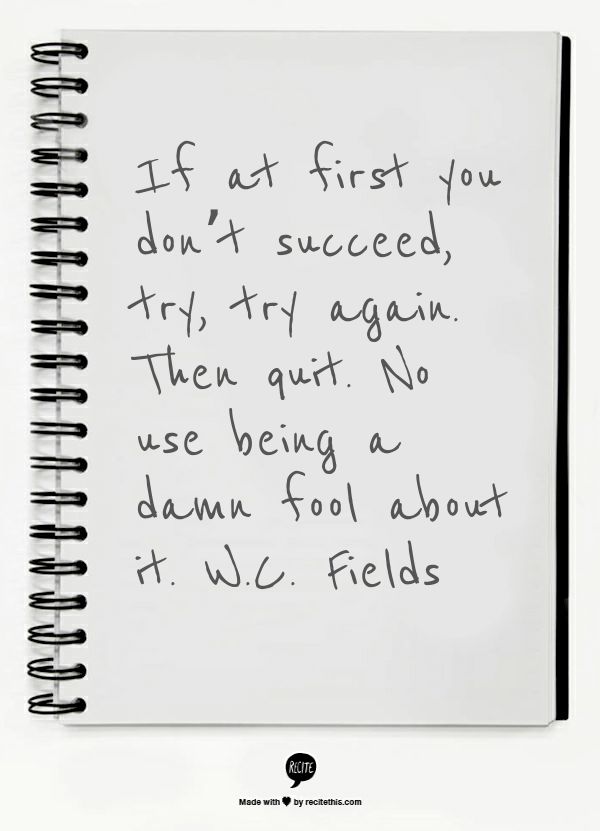 If at first you
don't succeed,
try, try again.
Then quit. No
use being a
damn fool about
it. W.C. Fields
RECITE
Made with ♥ by recitethis.com